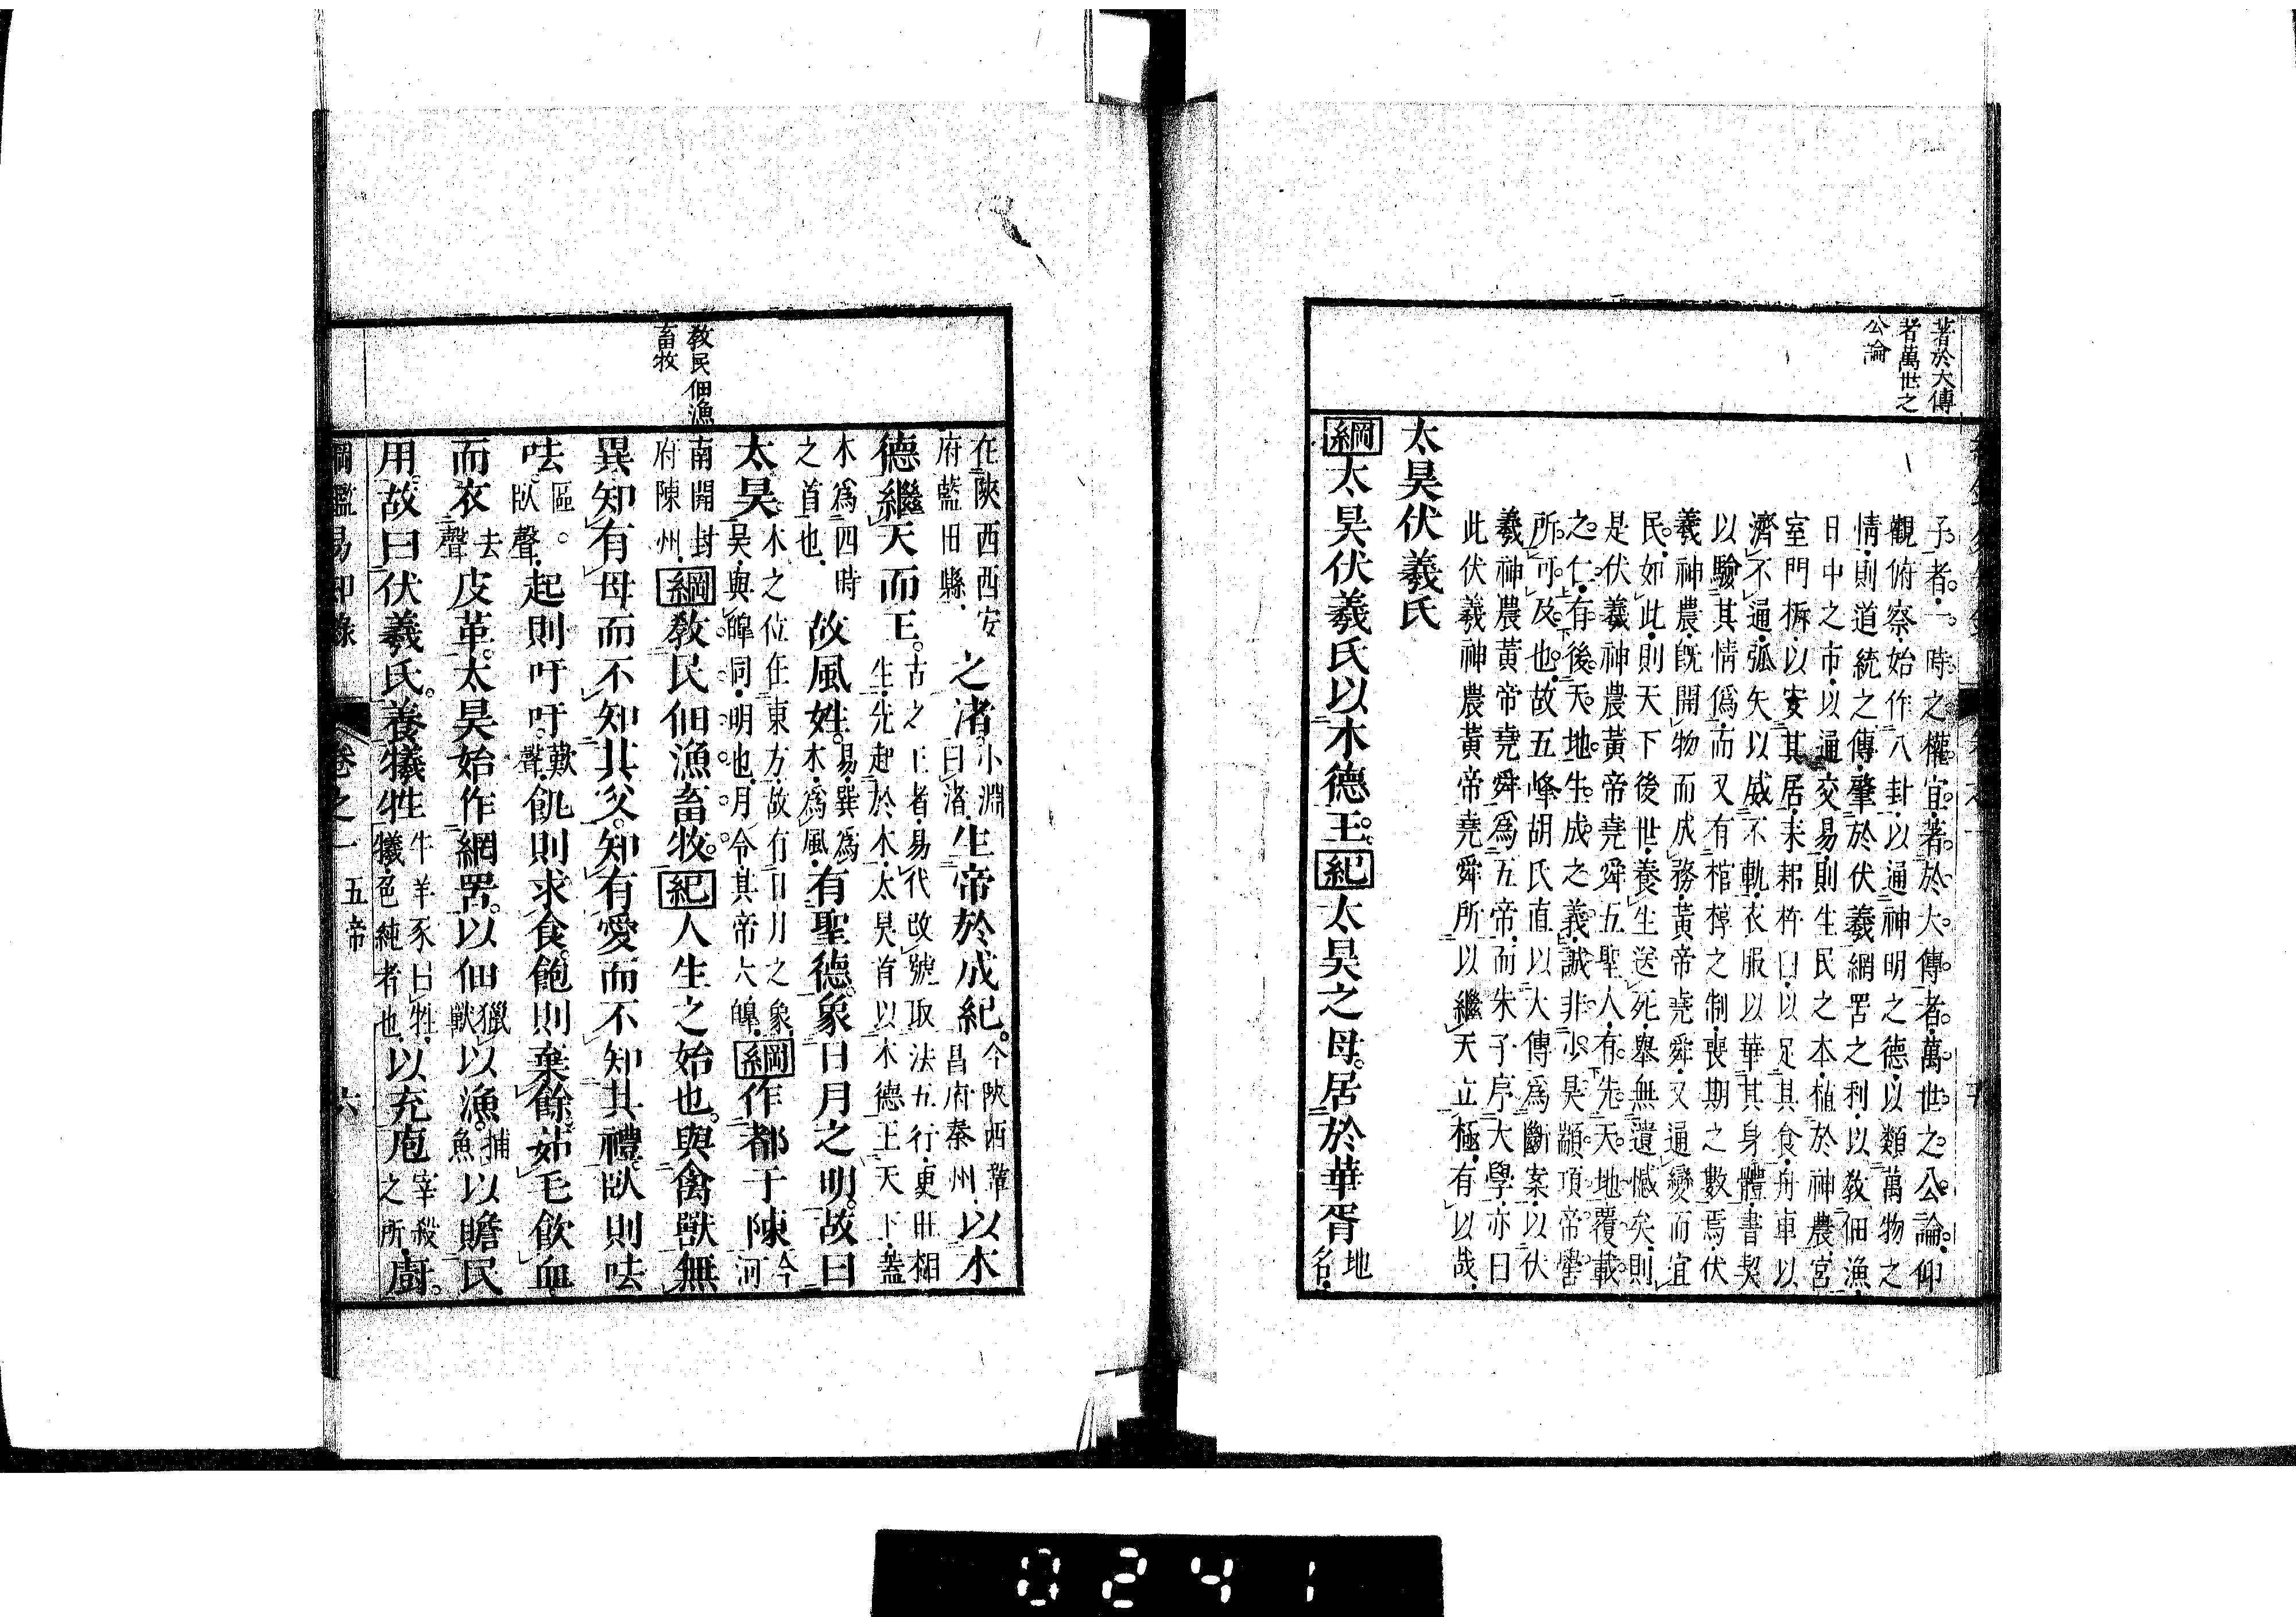 著於大傳
者萬世之
公論
子者一時之權宜著於大傳者萬世之公論仰
觀俯察始作八卦以通神明之德以類萬物之
情則道統之傳肇於伏羲網罟之利以教佃漁
日中之市以通交易則生民之本植於神農宮
室門柝以安其居耒耜杵臼以足其食舟車以
濟不通弧矢以威不軌衣服以華其身體書契
以驗其情僞而又有棺槨之制喪期之數焉伏
羲神農旣開物而成務黃帝堯舜又通變而宜
民如此則天下後世養生送死擧無遺憾矣則
是伏羲神農黃帝堯舜五聖人有先天地覆載
之仁有後天地生成之義誠非少昊顓頊帝嚳
所可及也故五峰胡氏直以大傳爲斷案以伏
羲神農黃帝堯舜爲五帝而朱子序大學亦曰
此伏羲神農黃帝堯舜所以繼天立極有以哉
太昊伏羲氏
綱太昊伏羲氏以木德王紀太昊之母居於華胥地名
在陝西西安府藍田縣之渚小淵曰渚生帝於成紀今陝西鞏昌府秦州以木
德繼天而王古之王者易代改號取法五行更旺相生先起於木太昊首以木德王天下蓋
木爲四時之首也故風姓易巽爲木爲風有聖德象日月之明故曰
太昊木之位在東方故有日月之象昊與皥同明也月令其帝大皥綱作都于陳今河
南開封府陳州綱敎民佃漁畜牧紀人生之始也與禽獸無
異知有母而不知其父知有愛而不知其禮臥則呿
呿區臥聲起則吁吁歎聲飢則求食飽則棄餘茹毛飮血
而衣去聲皮革太昊始作網罟以佃獵獸以漁捕魚以贍民
用故曰伏羲氏養犧牲牛羊豕曰牲犧色純者也以充庖宰殺之所廚
敎民佃漁
畜牧
綱鑑易知錄 卷之一 五帝 六
0241